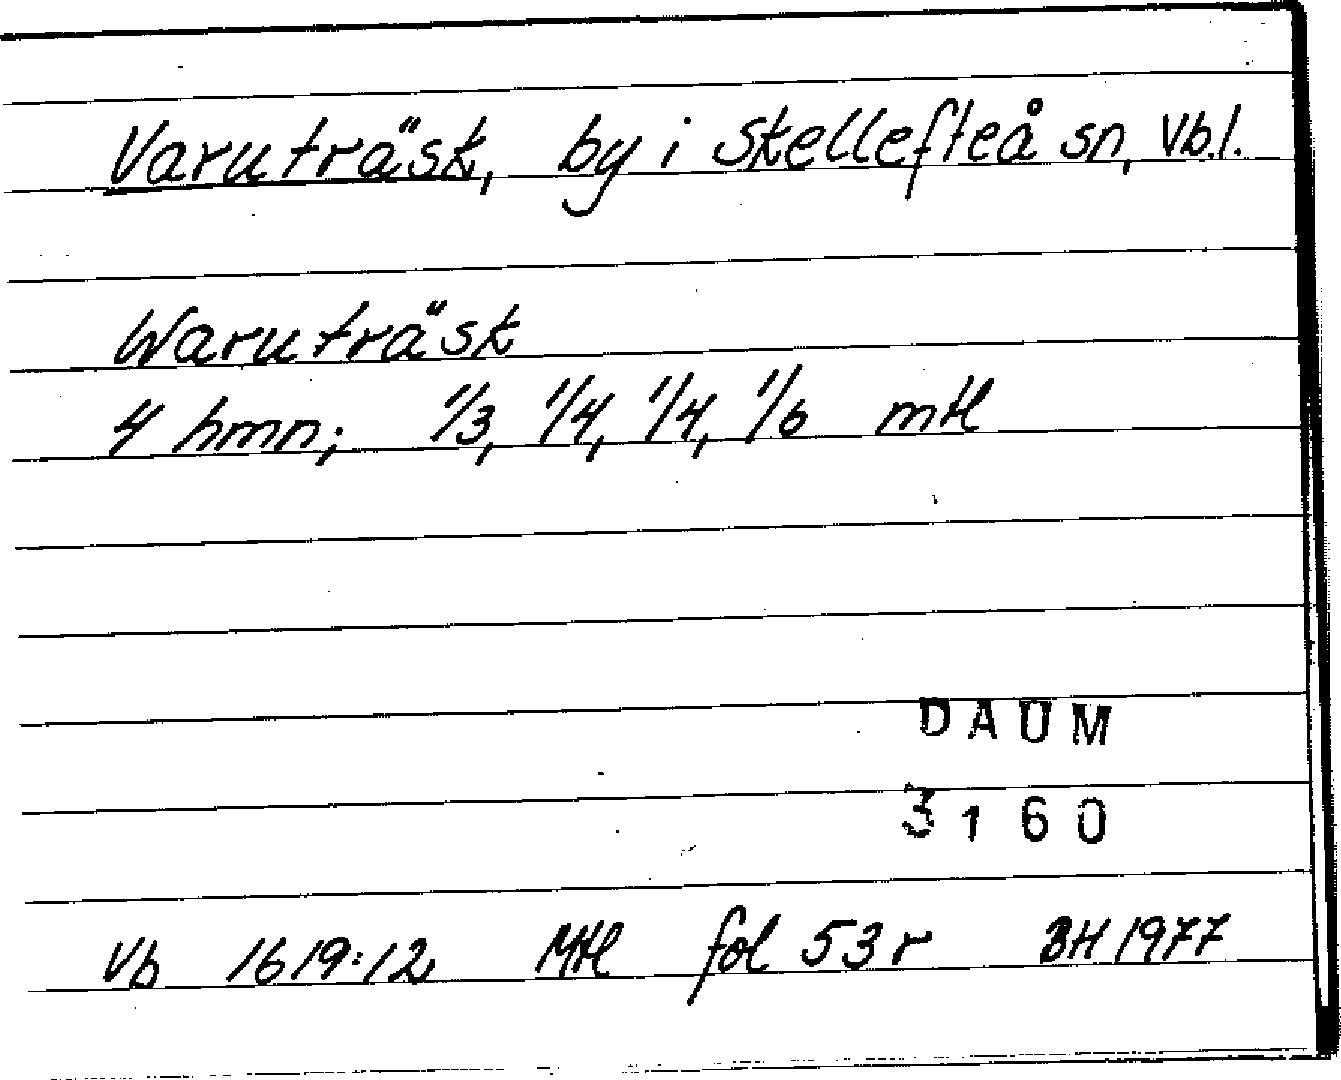 Varuträsk, by i Skellefteå sn, Vb.l.
Waruträsk
4 hmn; 1/3, 1/4, 1/4, 1/6 mtl
DAUM
3160
Vb 1619:12 Mtl fol 53r BH 1977